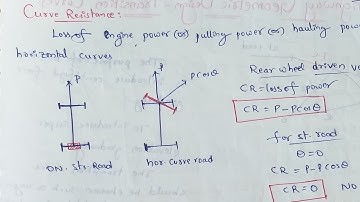 Curve Resistance:
Loss of Engine power (or) pulling power (or) hauling power
horizontal curves
P
P
Pcosθ
on. St. Road
hor. curve road
Rear wheel driven
CR = loss of power
CR = P - Pcosθ
for st. road
θ = 0
CR = P - Pcosθ
CR = 0
NO